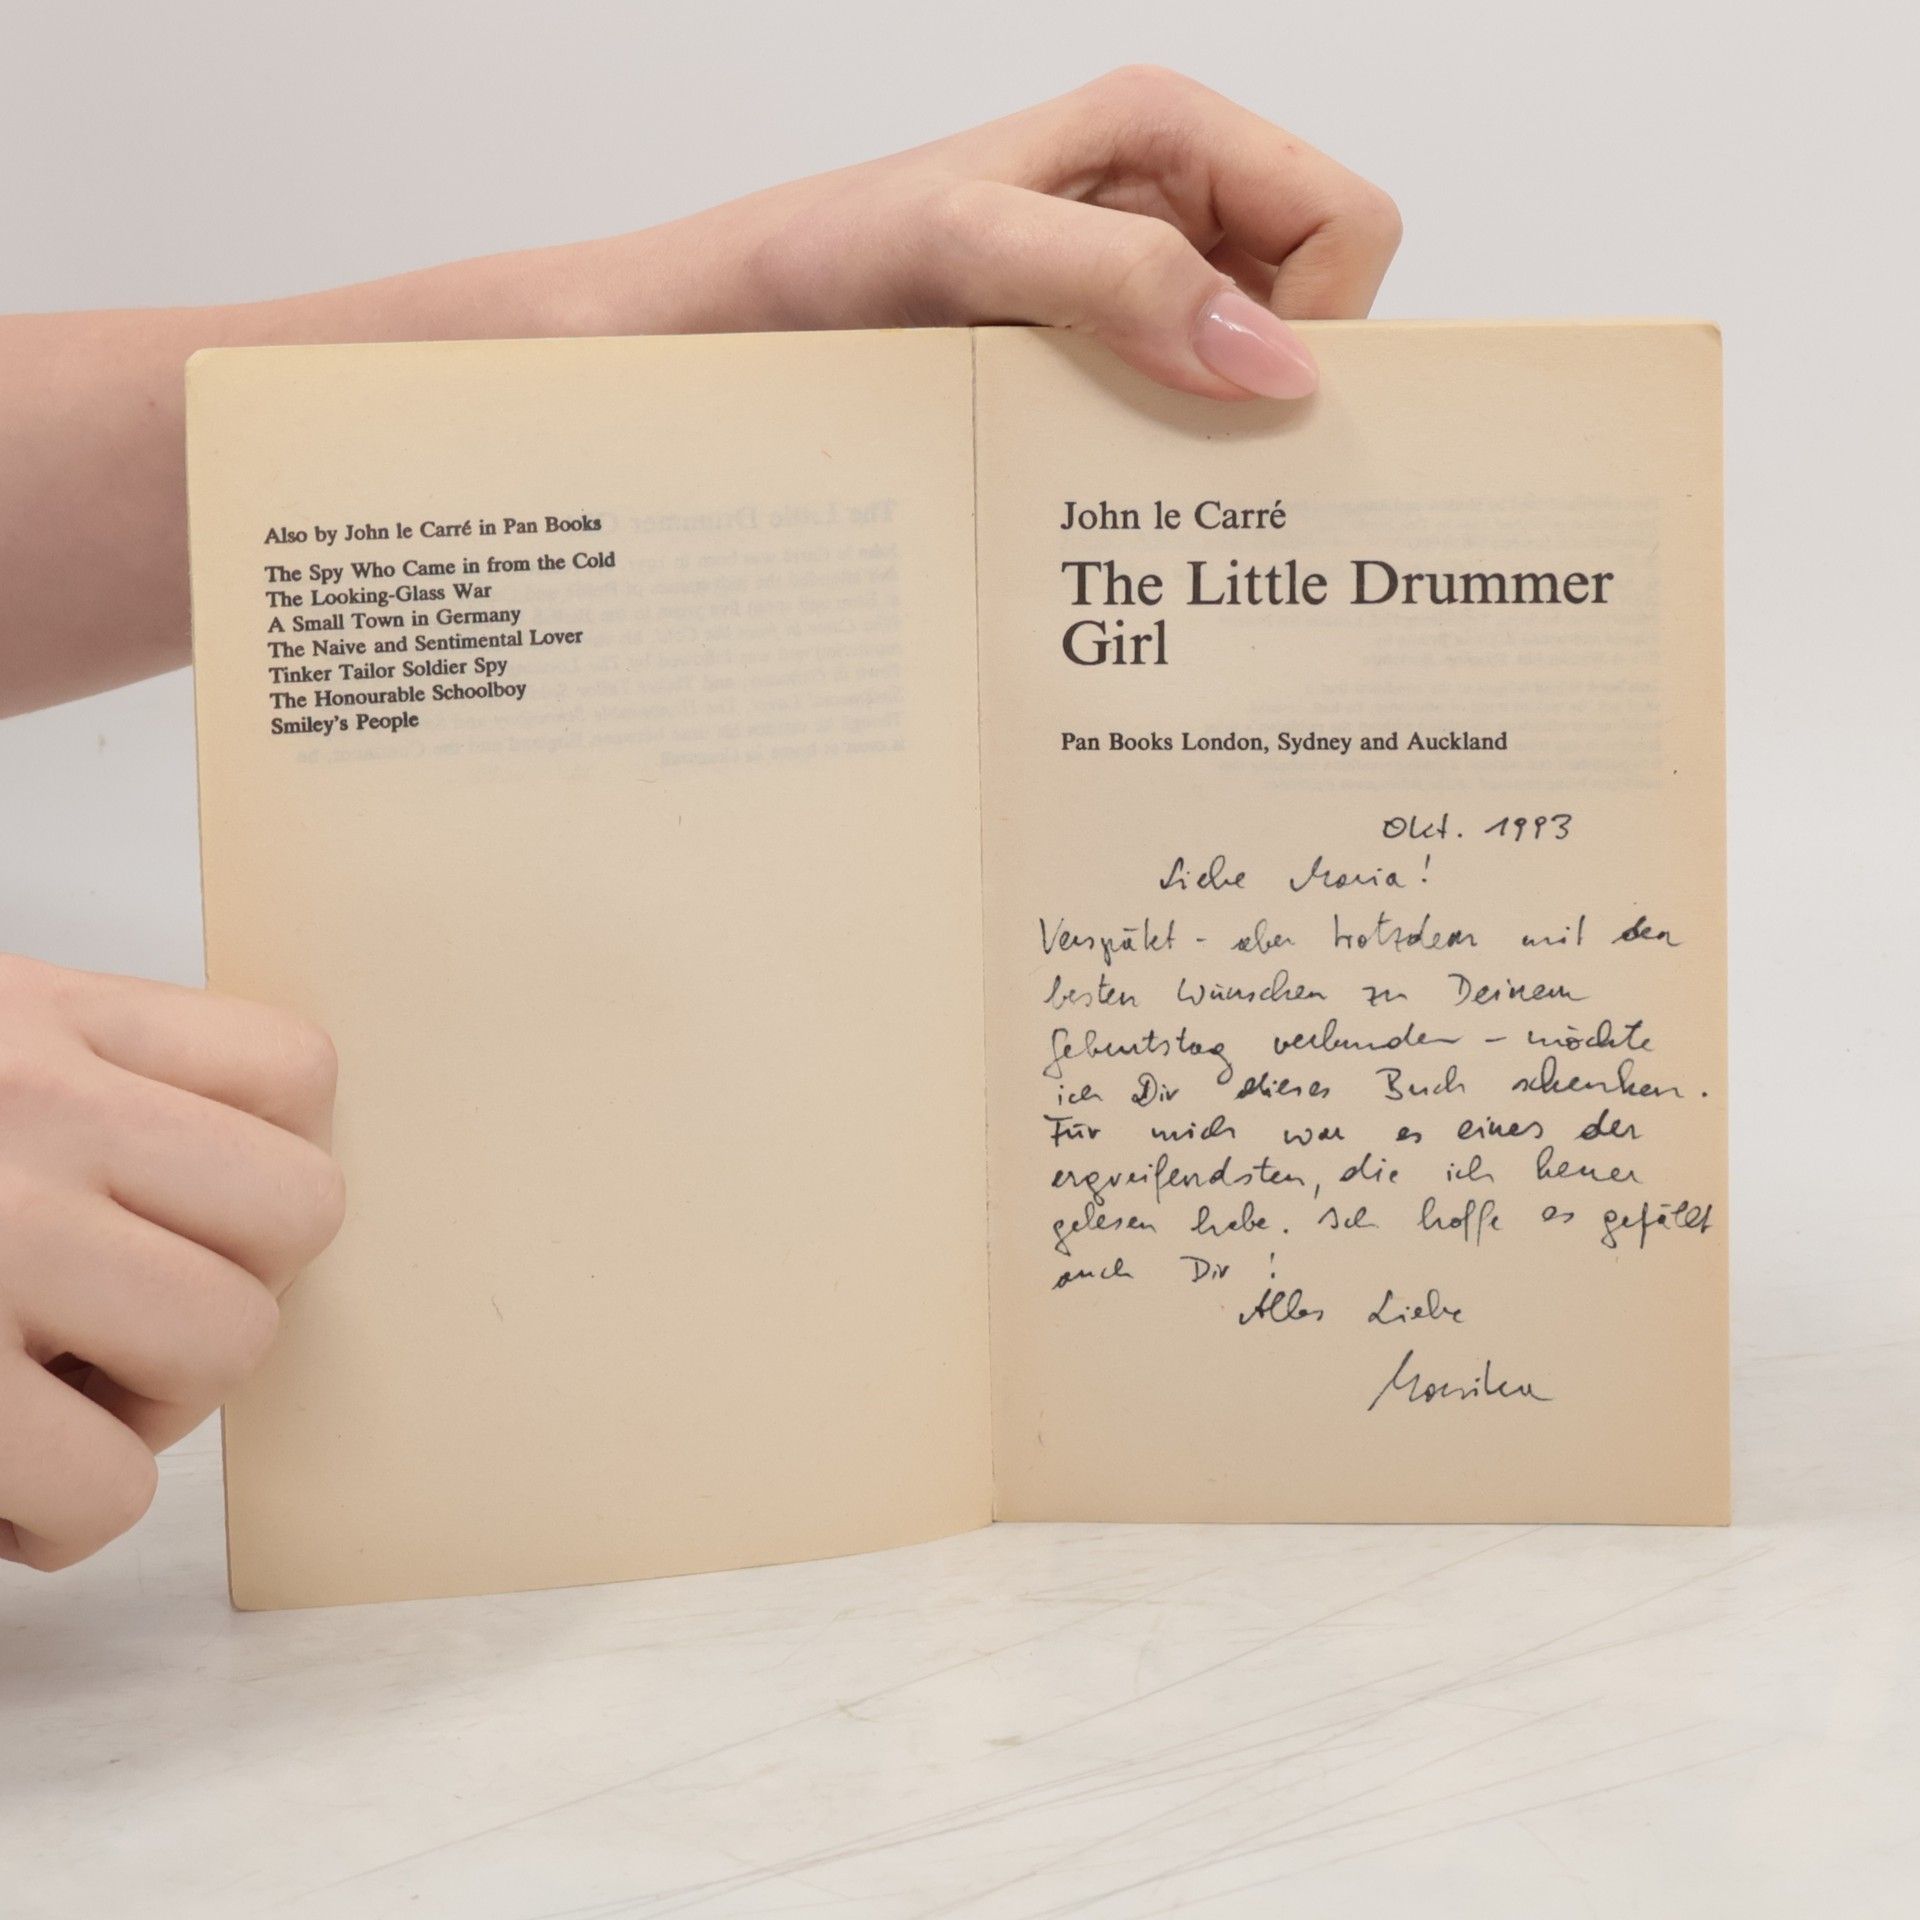 Also by John le Carré in Pan Books
The Spy Who Came in from the Cold
The Looking-Glass War
A Small Town in Germany
The Naive and Sentimental Lover
Tinker Tailor Soldier Spy
The Honourable Schoolboy
Smiley's People
John le Carré
The Little Drummer
Girl
Pan Books London, Sydney and Auckland
Okt. 1993
Liebe Maria!
Verspätet - aber trotzdem mit den
besten Wünschen zu Deinem
Geburtstag verbunden - möchte
ich Dir dieses Buch schenken.
Für mich war es eines der
ergreifendsten, die ich heuer
gelesen habe. Ich hoffe es gefällt
auch Dir!
Alles Liebe
Monika